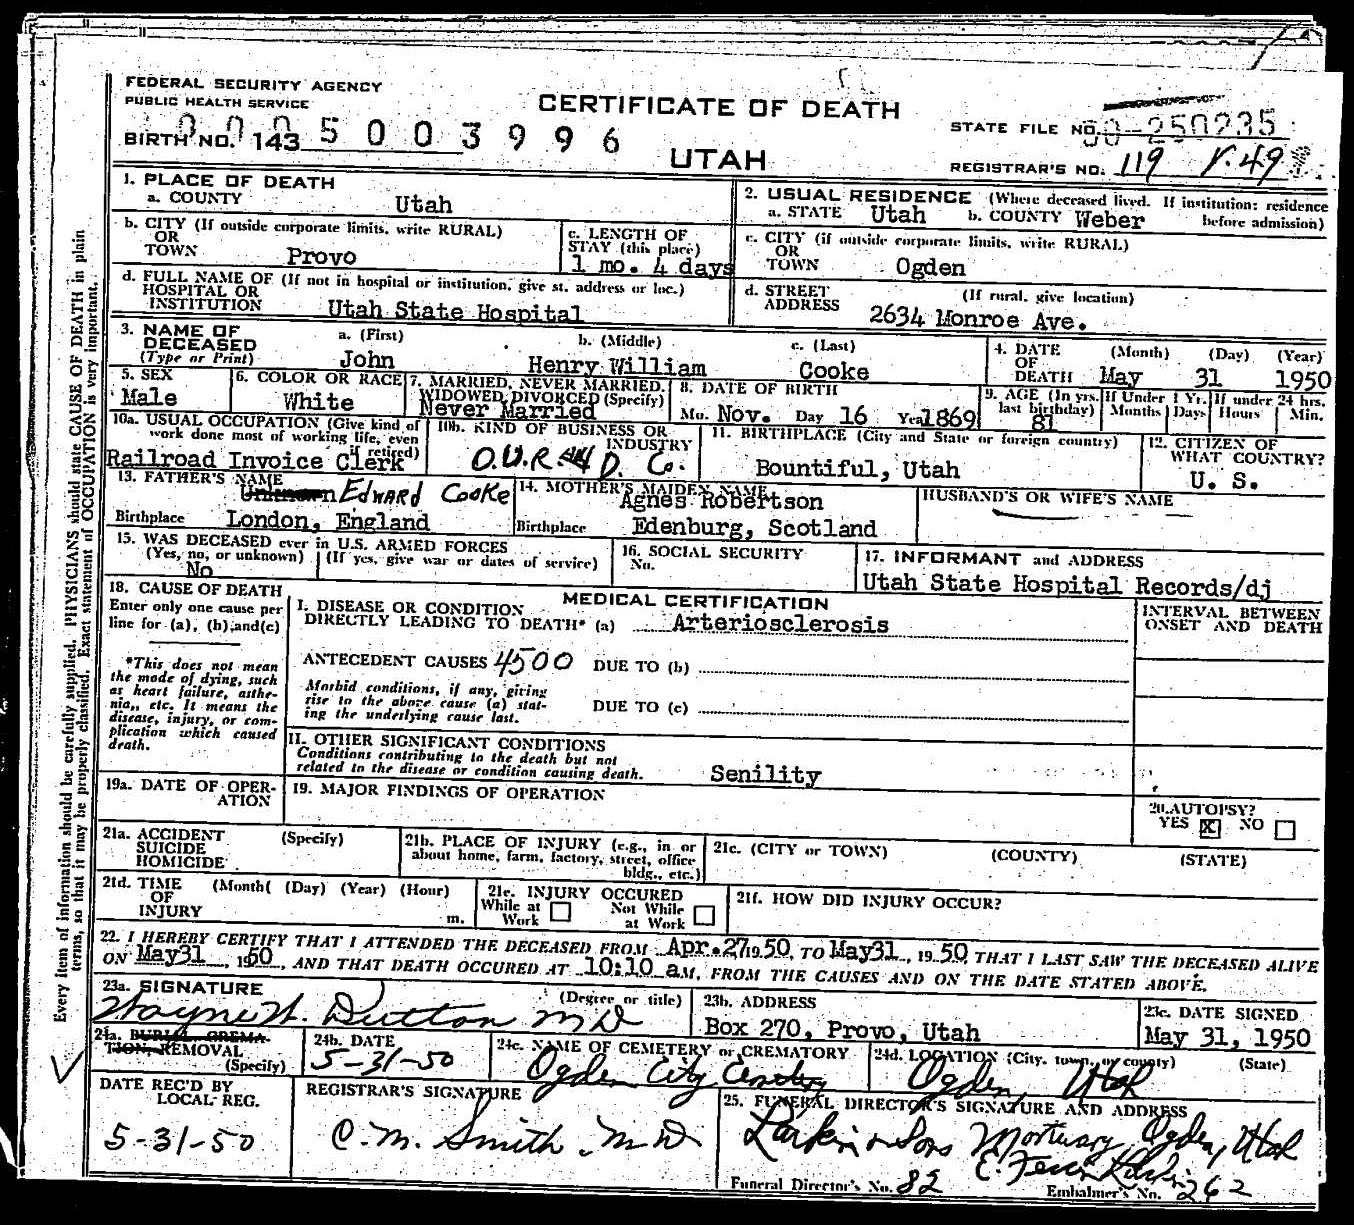 FEDERAL SECURITY AGENCY
PUBLIC HEALTH SERVICE
CERTIFICATE OF DEATH
UTAH
BIRTH NO. 143 5003996
STATE FILE NO. 50-250235
REGISTRAR'S NO. 119 V.49
Every item of information should be carefully supplied. PHYSICIANS should state CAUSE OF DEATH in plain
terms, so that it may be properly classified. Exact statement of OCCUPATION is very important.
1. PLACE OF DEATH
a. COUNTY Utah
2. USUAL RESIDENCE (Where deceased lived. If institution: residence
a. STATE Utah b. COUNTY Weber before admission)
b. CITY (If outside corporate limits, write RURAL)
OR
TOWN Provo
c. LENGTH OF
STAY (this place)
1 mo. 4 days
c. CITY (if outside corporate limits, write RURAL)
OR
TOWN Ogden
d. FULL NAME OF (If not in hospital or institution, give st. address or loc.)
HOSPITAL OR
INSTITUTION Utah State Hospital
d. STREET (If rural, give location)
ADDRESS 2634 Monroe Ave.
3. NAME OF a. (First) b. (Middle) c. (Last)
DECEASED
(Type or Print) John Henry William Cooke
4. DATE (Month) (Day) (Year)
OF
DEATH May 31 1950
5. SEX
Male
6. COLOR OR RACE
White
7. MARRIED, NEVER MARRIED,
WIDOWED DIVORCED (Specify)
Never Married
8. DATE OF BIRTH
Mo. Nov. Day 16 Year 1869
9. AGE (In yrs. last birthday) 81
If Under 1 Yr. Months Days
If under 24 hrs. Hours Min.
10a. USUAL OCCUPATION (Give kind of
work done most of working life, even
if retired)
Railroad Invoice Clerk
10b. KIND OF BUSINESS OR
INDUSTRY
O.U.R. & D. Co.
11. BIRTHPLACE (City and State or foreign country)
Bountiful, Utah
12. CITIZEN OF
WHAT COUNTRY?
U. S.
13. FATHER'S NAME
Unknown EDWARD COOKE
Birthplace London, England
14. MOTHER'S MAIDEN NAME
Agnes Robertson
Birthplace Edenburg, Scotland
HUSBAND'S OR WIFE'S NAME
15. WAS DECEASED ever in U.S. ARMED FORCES
(Yes, no, or unknown) (If yes, give war or dates of service)
No
16. SOCIAL SECURITY
No.
17. INFORMANT and ADDRESS
Utah State Hospital Records/dj
18. CAUSE OF DEATH
Enter only one cause per
line for (a), (b), and (c)
*This does not mean
the mode of dying, such
as heart failure, asthe-
nia, etc. It means the
disease, injury, or com-
plication which caused
death.
MEDICAL CERTIFICATION
I. DISEASE OR CONDITION
DIRECTLY LEADING TO DEATH* (a) Arteriosclerosis
ANTECEDENT CAUSES 4500 DUE TO (b)
Morbid conditions, if any, giving
rise to the above cause (a) stat-
ing the underlying cause last.
DUE TO (c)
INTERVAL BETWEEN
ONSET AND DEATH
II. OTHER SIGNIFICANT CONDITIONS
Conditions contributing to the death but not
related to the disease or condition causing death. Senility
19a. DATE OF OPER-
ATION
19. MAJOR FINDINGS OF OPERATION
20. AUTOPSY?
YES X NO
21a. ACCIDENT (Specify)
SUICIDE
HOMICIDE
21b. PLACE OF INJURY (e.g., in or
about home, farm, factory, street, office
bldg., etc.)
21c. (CITY or TOWN) (COUNTY) (STATE)
21d. TIME (Month( (Day) (Year) (Hour)
OF
INJURY m.
21e. INJURY OCCURED
While at Work Not While at Work
21f. HOW DID INJURY OCCUR?
22. I HEREBY CERTIFY THAT I ATTENDED THE DECEASED FROM Apr. 27 1950, TO May 31, 1950 THAT I LAST SAW THE DECEASED ALIVE
ON May 31, 1950, AND THAT DEATH OCCURED AT 10:10 a M., FROM THE CAUSES AND ON THE DATE STATED ABOVE.
23a. SIGNATURE (Degree or title)
Wayne W. Dutton MD
23b. ADDRESS
Box 270, Provo, Utah
23c. DATE SIGNED
May 31, 1950
24a. BURIAL, CREMA-
TION, REMOVAL
(Specify)
24b. DATE
5-31-50
24c. NAME OF CEMETERY or CREMATORY
Ogden City Cemetery
24d. LOCATION (City, town, or county) (State)
Ogden, Utah
DATE REC'D BY
LOCAL REG.
5-31-50
REGISTRAR'S SIGNATURE
C. M. Smith, MD
25. FUNERAL DIRECTOR'S SIGNATURE AND ADDRESS
Larkin & Sons Mortuary, Ogden, Utah
E. Larkin
Funeral Director's No. 82 Embalmer's No. 262